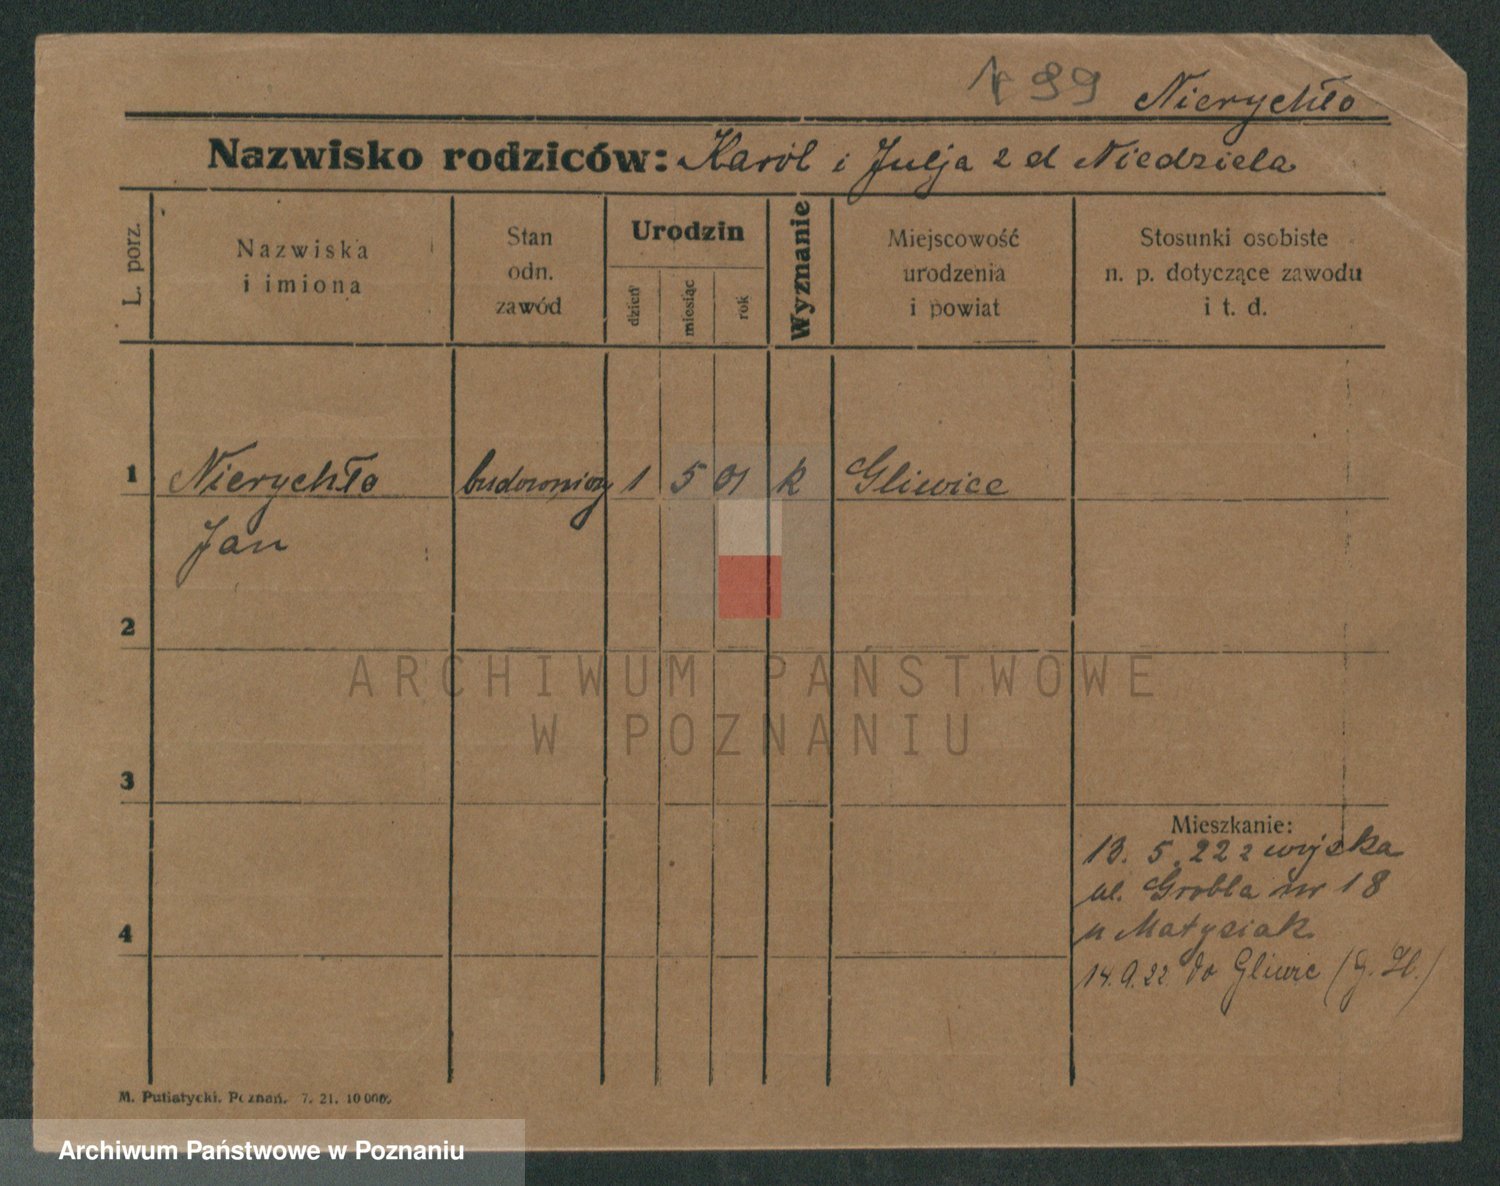 99 Nierychło
Nazwisko rodziców: Karól i Julja z d Niedziela
L. porz.
Nazwiska
i imiona
Stan
odn.
zawód
Urodzin
dzień
miesiąc
rok
Wyznanie
Miejscowość
urodzenia
i powiat
Stosunki osobiste
n. p. dotyczące zawodu
i t. d.
1 Nierychło budowniczy 1 5 01 k Gliwice
Jan
2
3
Mieszkanie:
13. 5. 22 z wojska
ul. Grobla nr 18
4
u Matysiak
14.9.22 do Gliwic (g. Śl.)
M. Putiatycki. Poznań. 7. 21. 10 000.
ARCHIWUM PAŃSTWOWE
W POZNANIU
Archiwum Państwowe w Poznaniu